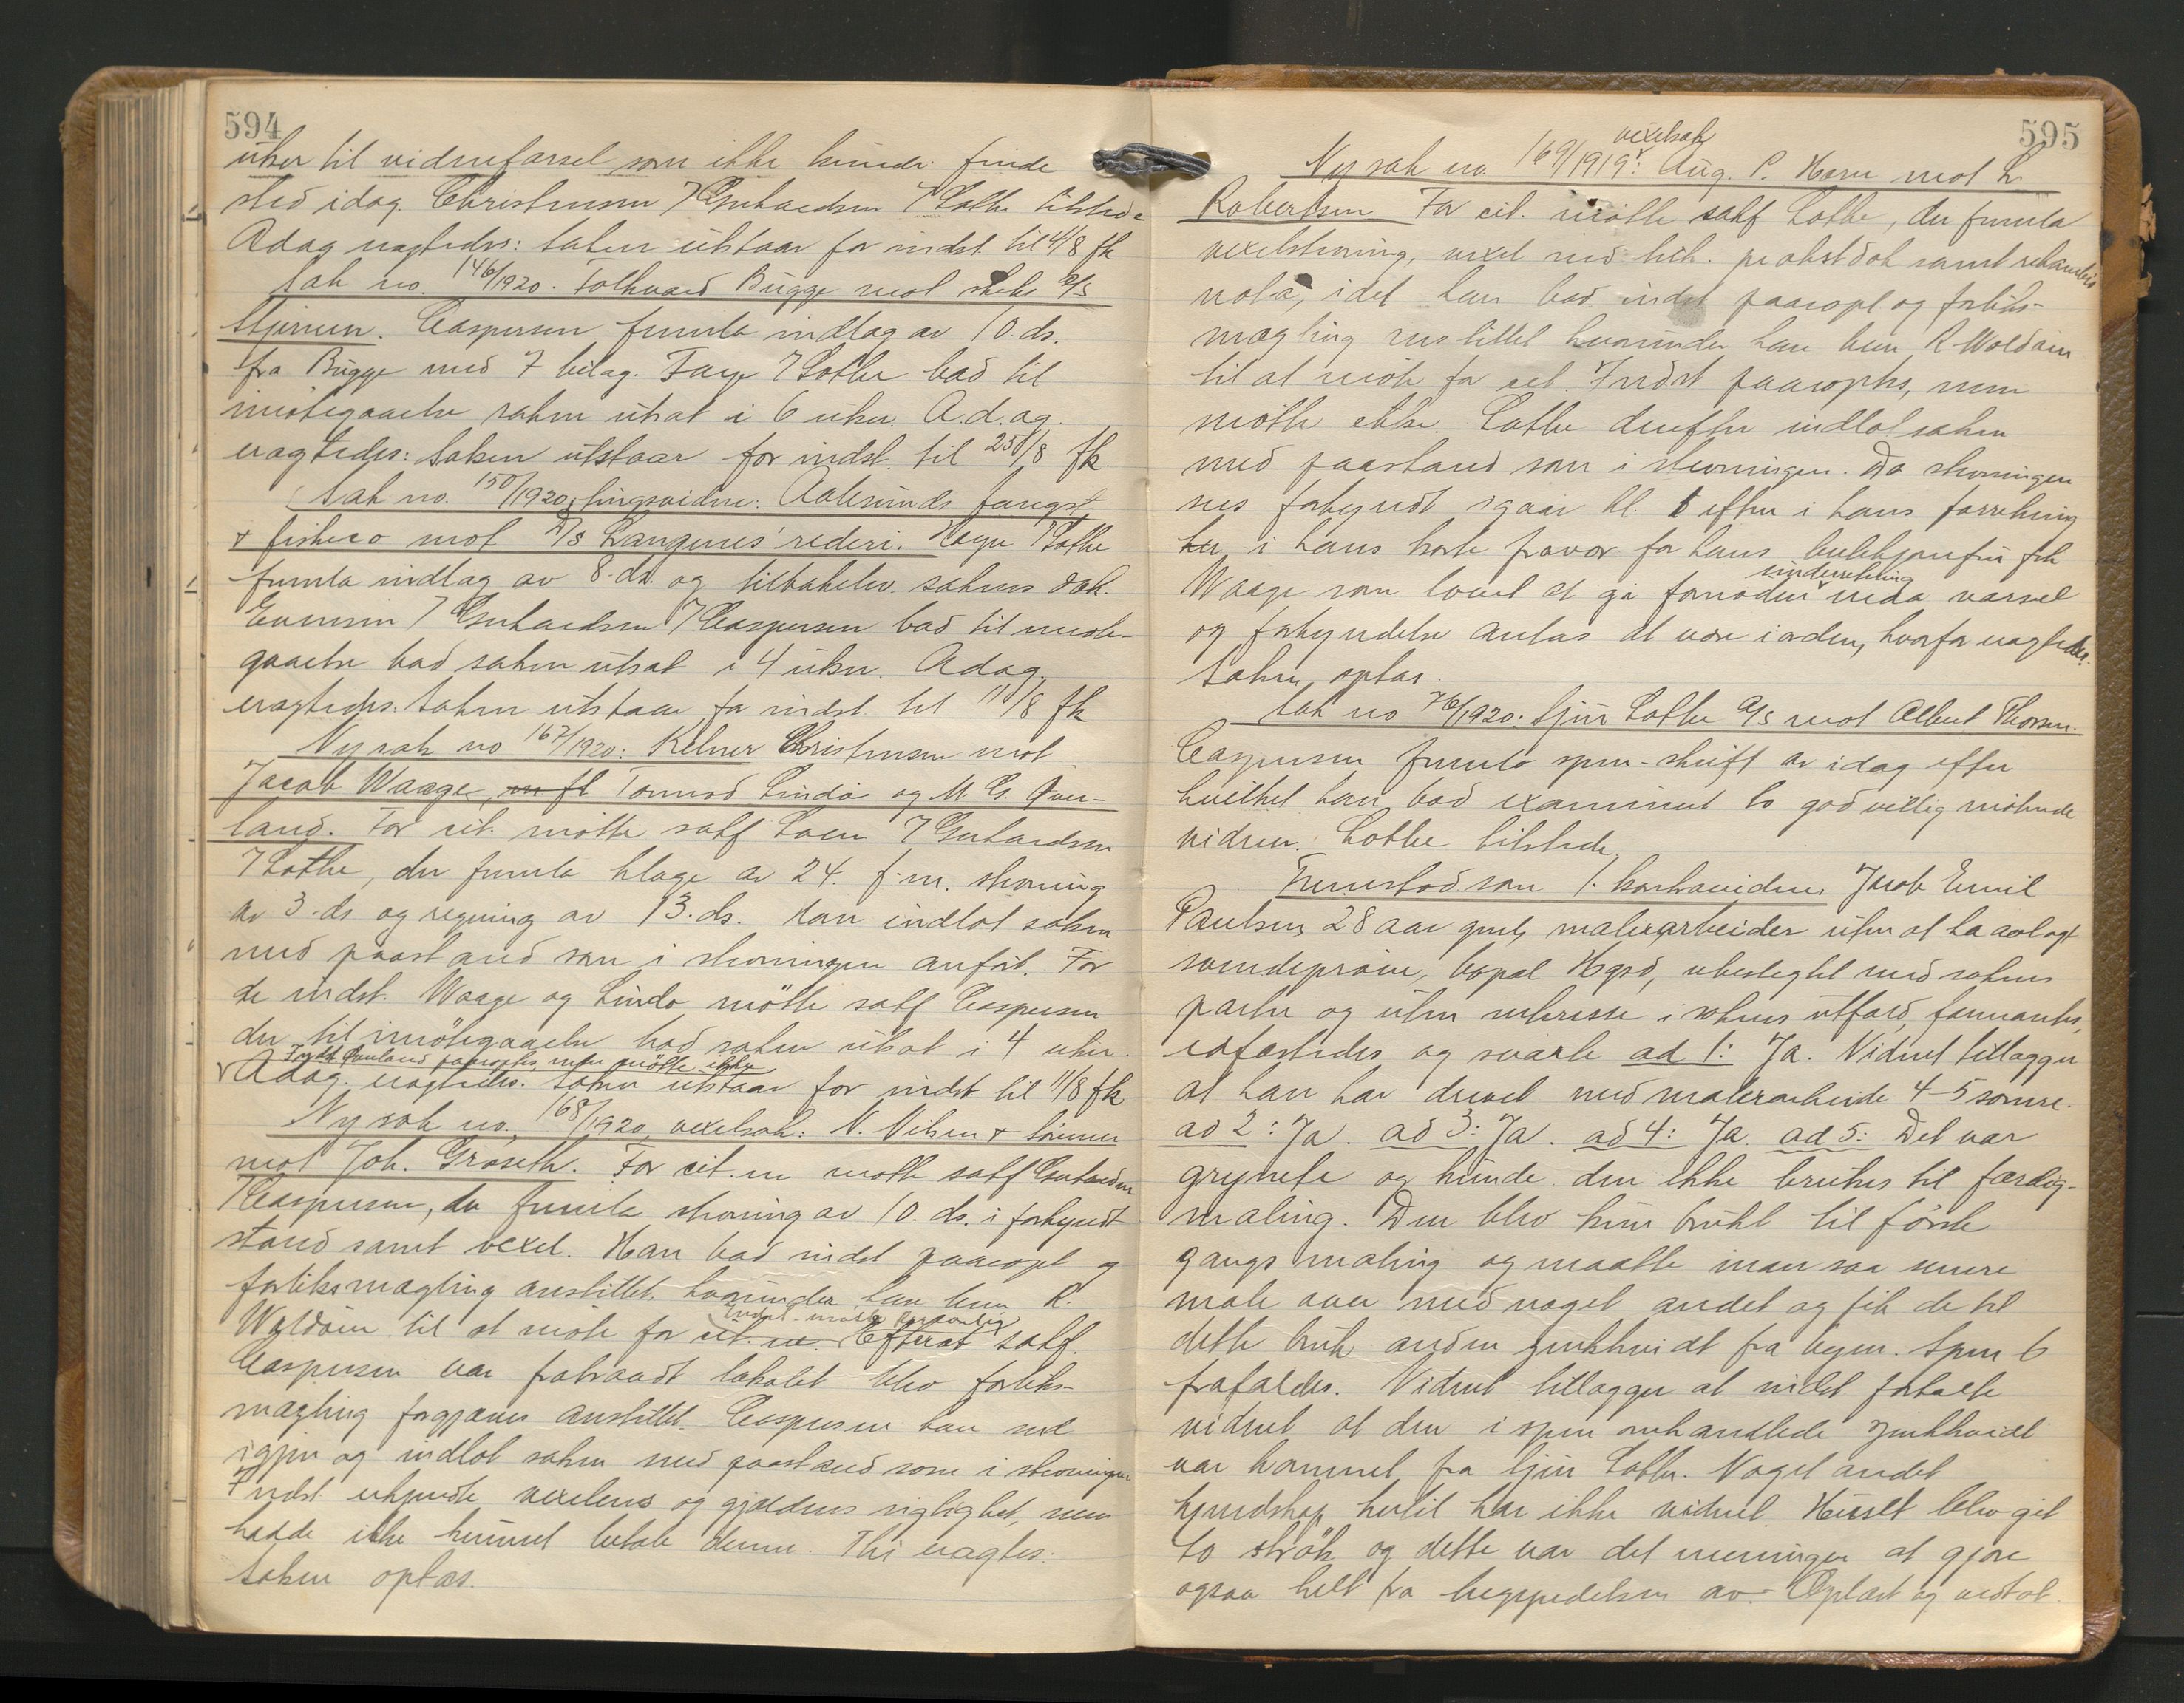 594
uker til vidneførsel som ikke kunde finde
sted idag. Christensen / Gerhardsen / Lothe tilstede
A.d.ag. eragtedes: Saken utstaar for indst. til 4/8 fk
Sak no. 146/1920. Folkvard Bugge mot skibs A/S
Stjernen. Caspersen fremla indlæg av 10. ds.
fra Bugge med 7 bilag. / Lothe bad til
imøtegaaelse saken utsat i 6 uker. A.d.ag.
eragtedes: Saken utstaar for indst. til 25/8 fk.
Sak no. 150/1920, tingsvidne: Aalesunds fangst
& fiskeco mot D/S Langenes' rederi. / Lothe
fremla indlæg av 8. ds. og tilbakelev. sakens dok.
Evensen / Gerhardsen / Caspersen bad til imøte-
gaaelse bad saken utsat i 4 uker. A.d.ag.
eragtedes: Saken utstaar for indst. til 11/8 fk
Ny sak no 167/1920: Kelner Christensen mot
Jacob Waage, m fl Tormod Lindø og M. G. Over-
land. For cit. møtte sakf. Loen / Gerhardsen
/ Lothe, der fremla klage av 24. f.m. stevning
av 3. ds. og regning av 13. ds. Han indlot saken
med paastand som i stevningen anført. For
de indst. Waage og Lindø møtte sakf Caspersen
der til imøtegaaelse bad saken utsat i 4 uker.
Indst. Overland paaroptes, men møtte ikke
A.d.ag. eragtedes: Saken utstaar for indst til 11/8 fk
Ny sak no. 168/1920, vexelsak: N. Nilsen & Sönner
mot Joh. Grøseth. For cit.ne møtte sakf Gerhardsen
/ Caspersen, der fremla stevning av 10. ds. i forkyndt
stand samt vexel. Han bad indst paaropt og
forliksmægling anstillet, hvorunder han bem R.
Waldøin til at møte for cit.ne. Indst. møtte personlig Efterat sakf.
Caspersen var fratraadt lokalet blev forliks-
mægling forgjæves anstillet. Caspersen kom ind
igjen og indlot saken med paastand som i stevningen
Indst erkjendte vexelens og gjældens rigtighet, men
hadde ikke kunnet betale denne. Thi eragtes:
Saken optas.
595
vexelsak
Ny sak no. 169/1919: Aug. C. Horn mot L.
Robertsen For cit. møtte sakf Lothe, der fremla
vexelstevning, vexel med tilh. protestdok samt rekambio
nota, idet han bad indst paaropt og forliks-
mægling anstillet hvorunder han bem R Waldøin
til at møte for cit. Indst paaroptes, men
møtte ikke. Lothe derefter indlot saken
med paastand som i stevningen. Da stevningen
sees forkyndt igaar kl. 1 efter i hans forretning
her, i hans korte fravær for hans frk
Waage som lovet at gi fornøden underretning herom varsel
og forkyndelse antas at være i orden, hvorfor eragtedes:
Saken optas.
Sak no 76/1920: Sjur Lothe A/S mot Albert Thorsen.
Caspersen fremla spm-skrift av idag efter
hvilket han bad examinert to godvillig møtende
vidner. Lothe tilstede.
Fremstod som 1. kontravidne Jacob Emil
Paulsen 28 aar gml, malerarbeider uten at ha avlagt
svendeprøve, bopæl Hgsd, ubeslegtet med sakens
parter og uten interesse i sakens utfald, formantes,
edfæstedes og svarte ad 1: Ja. Vidnet tillægger
at han har drevet med malerarbeide 4-5 somre.
ad 2: Ja. ad 3: Ja. ad 4: Ja. ad 5: Det var
grynete og kunde den ikke brukes til færdig-
maling. Den blev kun brukt til første
gangs maling og maatte man saa senere
male over med noget andet og fik de til
dette bruk anden zinkhvidt fra byen. Spm 6
frafaldes. Vidnet tillægger at indst fortalte
vidnet at den i spm omhandlede zinkhvidt
var kommet fra Sjur Lothe. Noget andet
kjendskap hertil har ikke vidnet. Huset blev git
to strök og dette var det meningen at gjøre
ogsaa helt fra begyndelsen av. Oplæst og vedtat.